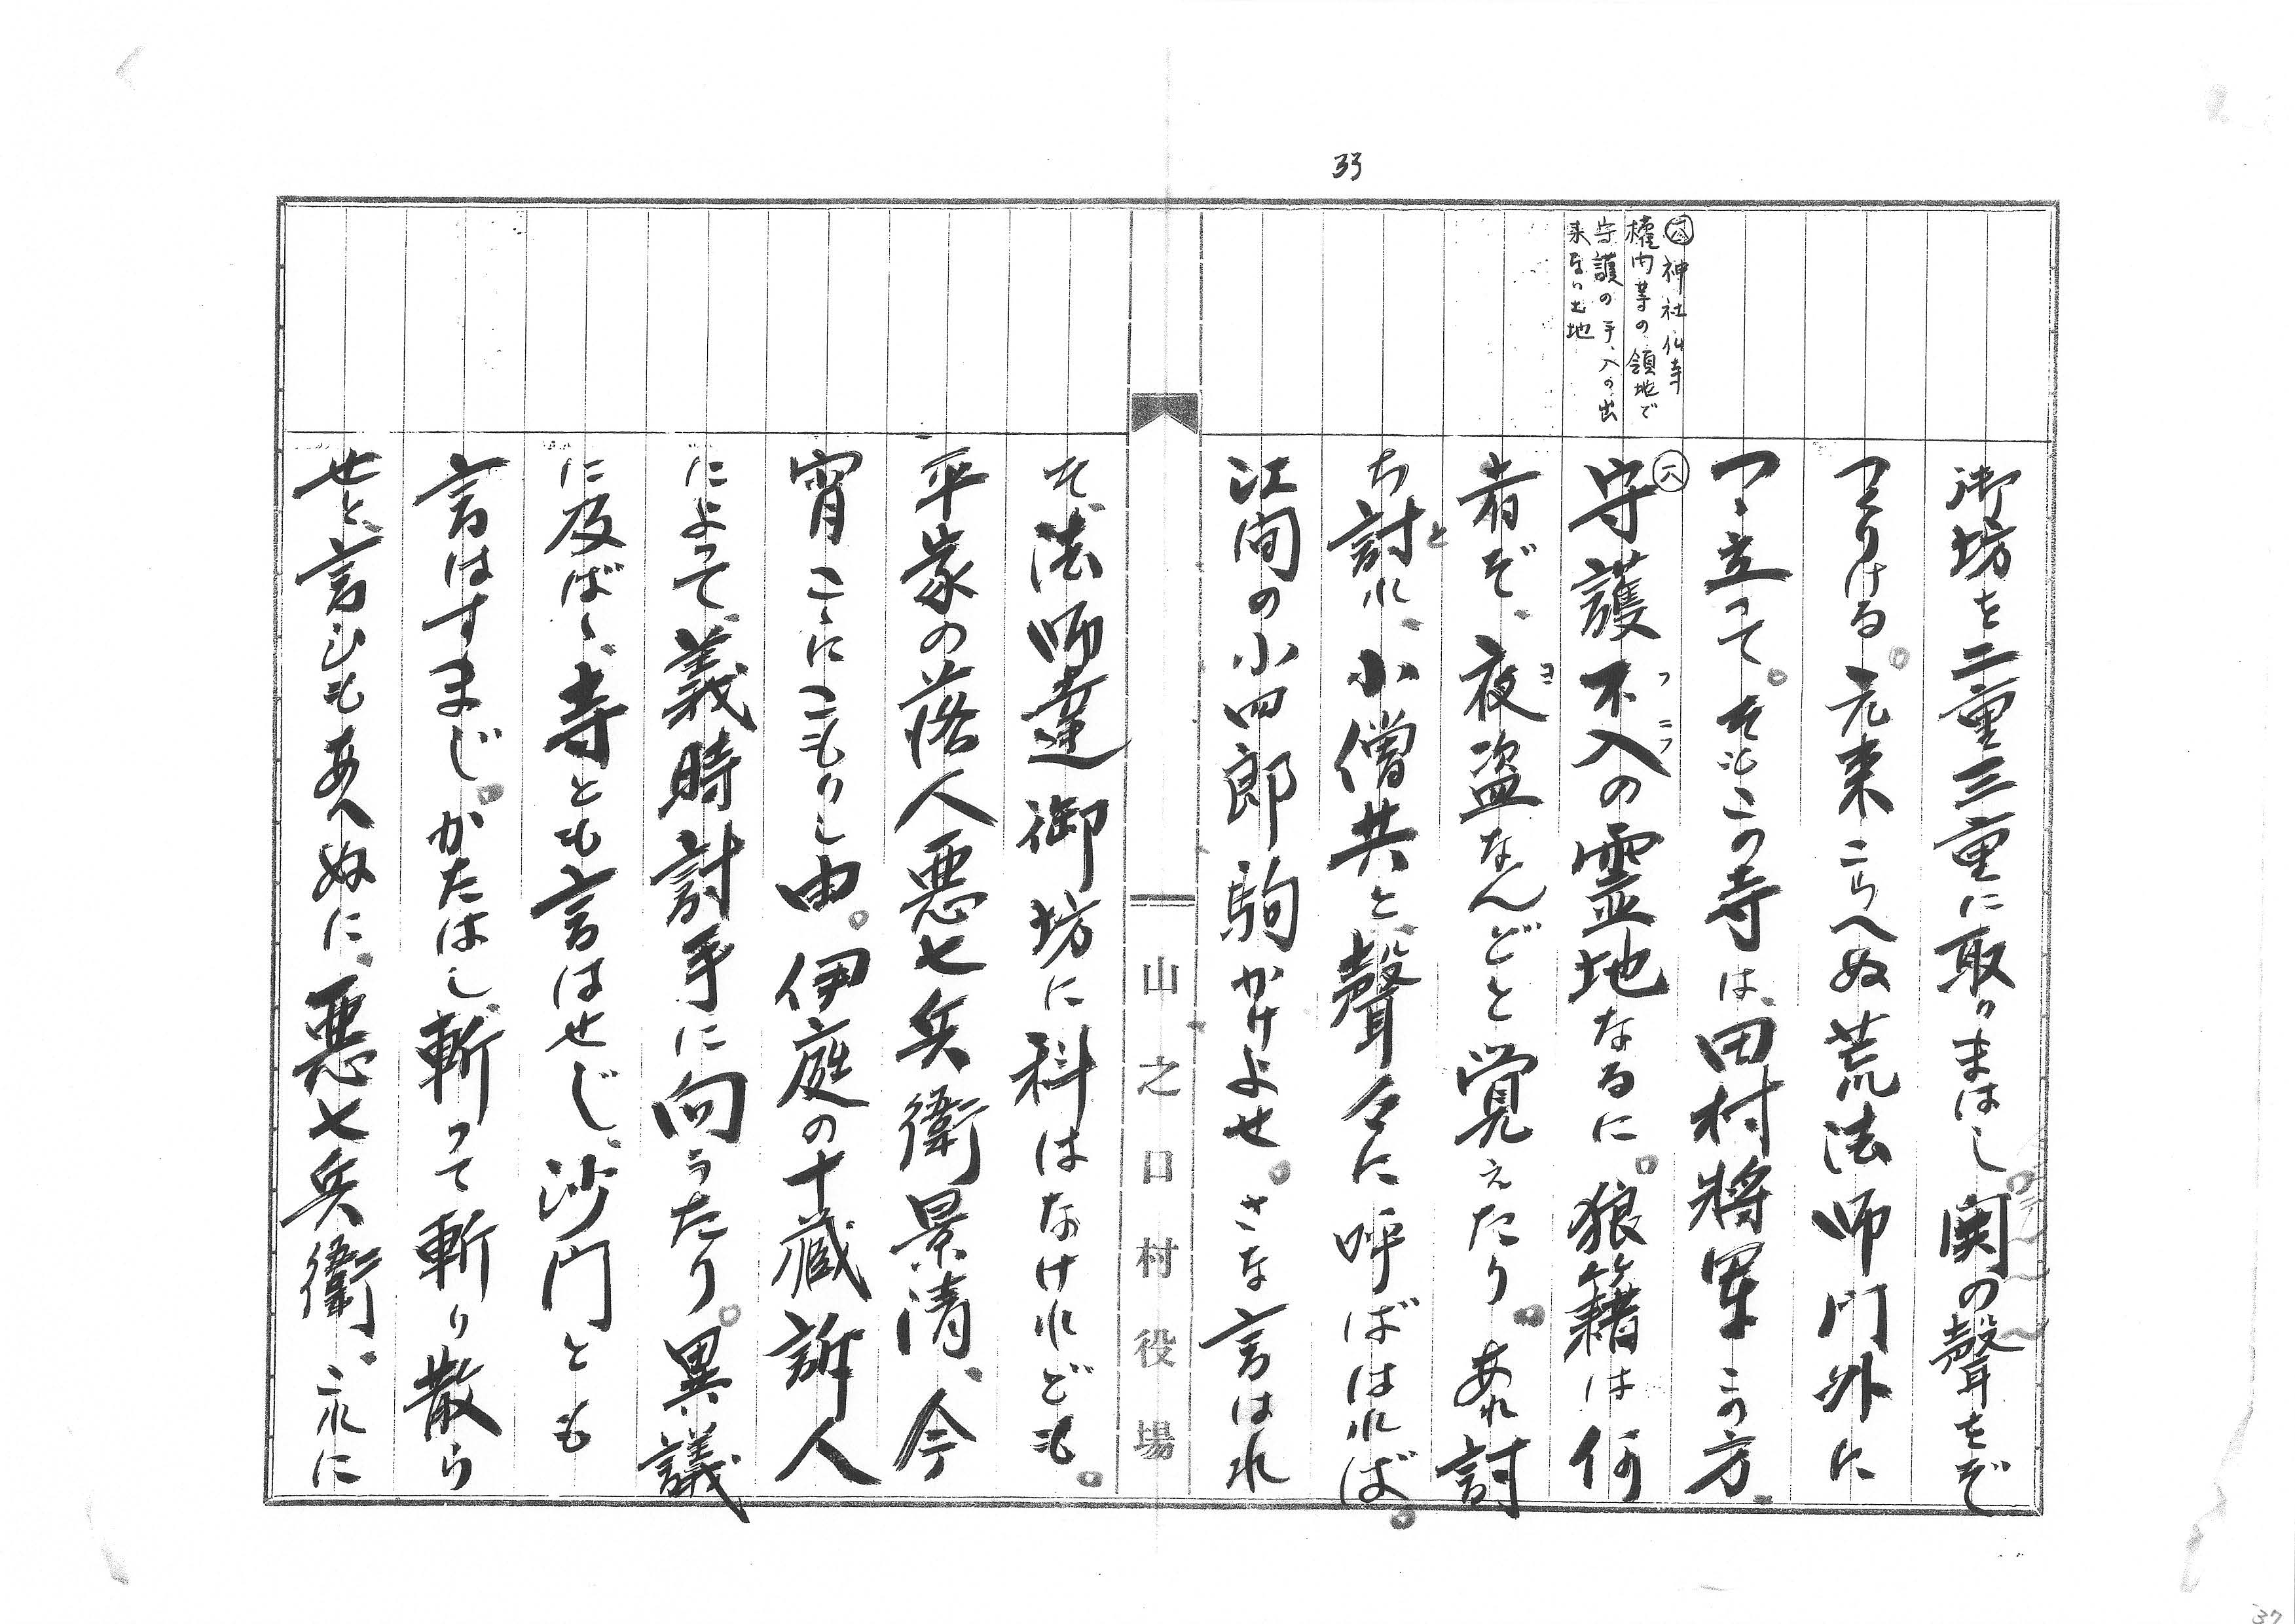 33
㊅ 神社仏寺
権内等の領地で
守護の手入の出
来ない土地
御坊を二重三重に取りまはし関の聲をぞ
つくりける。元来こらへぬ荒法師門外に
つゝ立って。そもこの寺は、田村将軍この方、
守護不入の霊地なるに。狼籍は何
フニフ
者ぞ、夜盗なんどと覚えたり。あれ討
ヨ
ち討れ、小僧共と、聲々に呼ばはれば。
と
江間の小四郎駒かけよせ。さな言はれ
山之口村役場
そ、法師達御坊に科はなけれども。
平家の落人悪七兵衛景清、今
宵こゝにこもりし由。伊庭の十蔵訴人
によって、義時討手に向うたり。異議
に及ばゝ、寺とも言はせじ、沙門とも
言はすまじ。かたはし、斬って斬り散ら
せと、言ひもあへぬに、悪七兵衛、これに
37